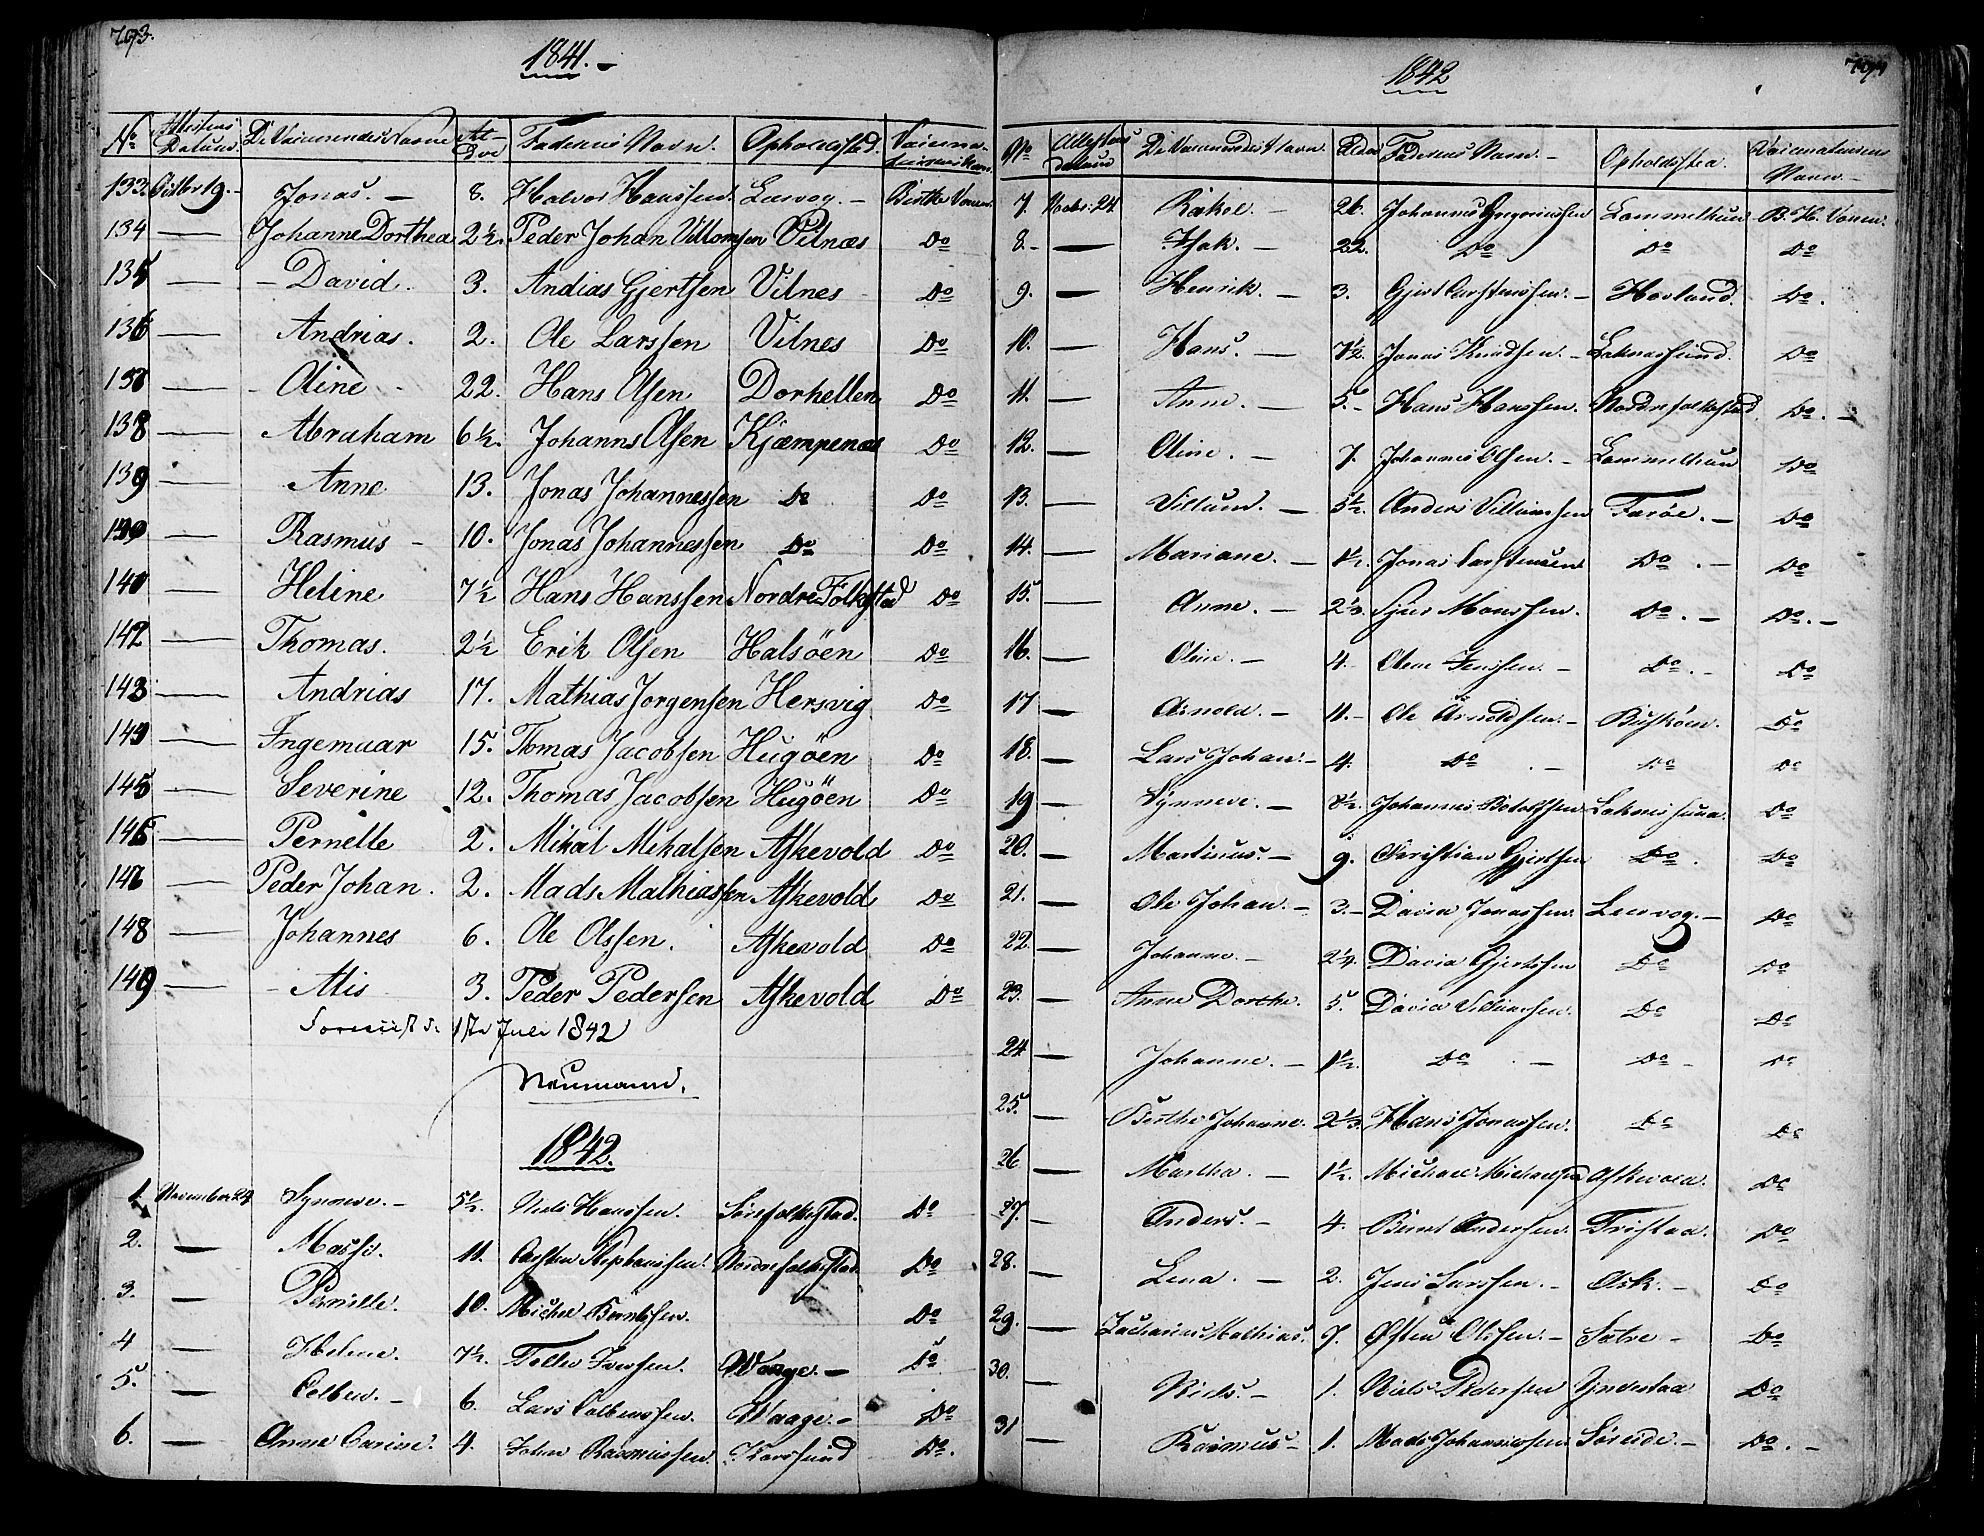 793.
1841.-
No Attestens Datum. De Vaccineredes Navne Alder Faderens Navn. Opholdssted. Vaccinateurens Navn.
133. Octbr 19.- Jonas. - 8. Halvor Hanssen. Leervog.- Birthe Vonen.
134 — Johanne Dorthea 2½. Peder Johan Villomsen Vilnæs Do
135 — David. 3. Andias Gjertsen Vilnes Do
136 — Andrias. 2. Ole Larssen Vilnes Do
137 — Oline 22. Hans Olsen Dorhellen Do
138 — Abraham 6½. Johanns Olsen Kjæmpenæs Do
139 — Anne 13. Jonas Johannessen Do Do
140 — Rasmus - 10. Jonas Johannessen Do Do
141 — Heline 7½ Hans Hanssen Nordre Folkestad Do
142 — Thomas. 2½ Erik Olsen Halsöen Do
143 — Andrias 17. Mathias Jorgensen Hersvig Do
144 — Ingemuar 15. Tomas Jacobsen Hugöen Do
145 — Severine 12. Thomas Jacobsen Hugöen Do
146 — Pernelle 2. Mikal Mikalsen Askevold Do
147 — Peder Johan. 2. Mads Mathiassen Askevold Do
148 — Johannes 6. Ole Olssen. Askevold Do
149 — Alis 3. Peder Pedersen Askevold Do
1ste Juli 1842
Neumann.
1842.
1. November 24 Synneve.- 5½. Niels Hanssen. Sørefolkestad. Do
2. — Massi. 11. Carsten Stephanssen. Nordrefolkestad. Do
3. — Pernille. 10. Michel Berntssen. Do
4 — Helene. 7½. Tollev Iverssen. Waage.- Do
5. — Colben.- 6. Lars Colbenssen. Waage.- Do
6. — Anne Carine. 4. John Rasmussen. Korssund Do.
794
1842
No Attestens Datum De Vaccineredes Navn. Alder Faderens Navn.- Opholdssted. Vaccinateurens Navn.-
7. Novbr. 24. Rakel.- 26. Johannes Gregoriussen Lammethun B. H. Vonen.
8.- — Isak.- 22. Do Do Do
9. — Henrik.- 3. Gjert Carstenssen.- Hovland. Do.
10. — Hans.- 7½. Jonas Knudsen.- Laknessund. Do
11. — Anne.- 5.- Hans Hanssen. Nordrefolkestad Do.-
12. — Oline.- 7. Johannes Olsen.- Lammethun Do
13. — Villum.- 5½. Anders Villumssen Færöe.- Do
14. — Mariane.- 1½. Jonas Carstensen Do.- Do
15. — Anne.- 2⅓. Siur Monssen. Do.- Do.-
16. — Oline.- 4. Olene Jenssen.- Do.- Do
17 — Arnold.- 11.- Ole Arnoldssen.- Busköen. Do
18. — Lars Johan.- 4. Do.- Do Do
19 — Synneve.- 8½. Johannes Botolfssen Laknessund. Do
20. — Martinus.- 9. Christian Gjertsen Do. Do
21. — Ole Johan.- 3.- David Jonassen. Leervog.- Do
22. — Johanne.- 2¼. David Gjertssen Do Do
23. — Anne Dorthe. 5. David Villumssen. Do Do
24 — Johanne.- 1½. Do.- Do- Do
25. — Berthe Johanne. 2⅓. Hans Jonassen. Do Do
26. — Martha.- 1½. Michael Michaelsen Askevold. Do
27. — Anders.- 4. Bernt Andersen. Tristad. Do
28. — Lena.- 2. Jens Larssen.- Ask.- Do
29. — Zacharias Mathias. 7. Østen Olssen.- Sætre- Do
30. — Niels.- 1. Niels Pedersen Yndestad Do
31 — Rasmus- 1. Mads Johannessen Søreide.- Do.-